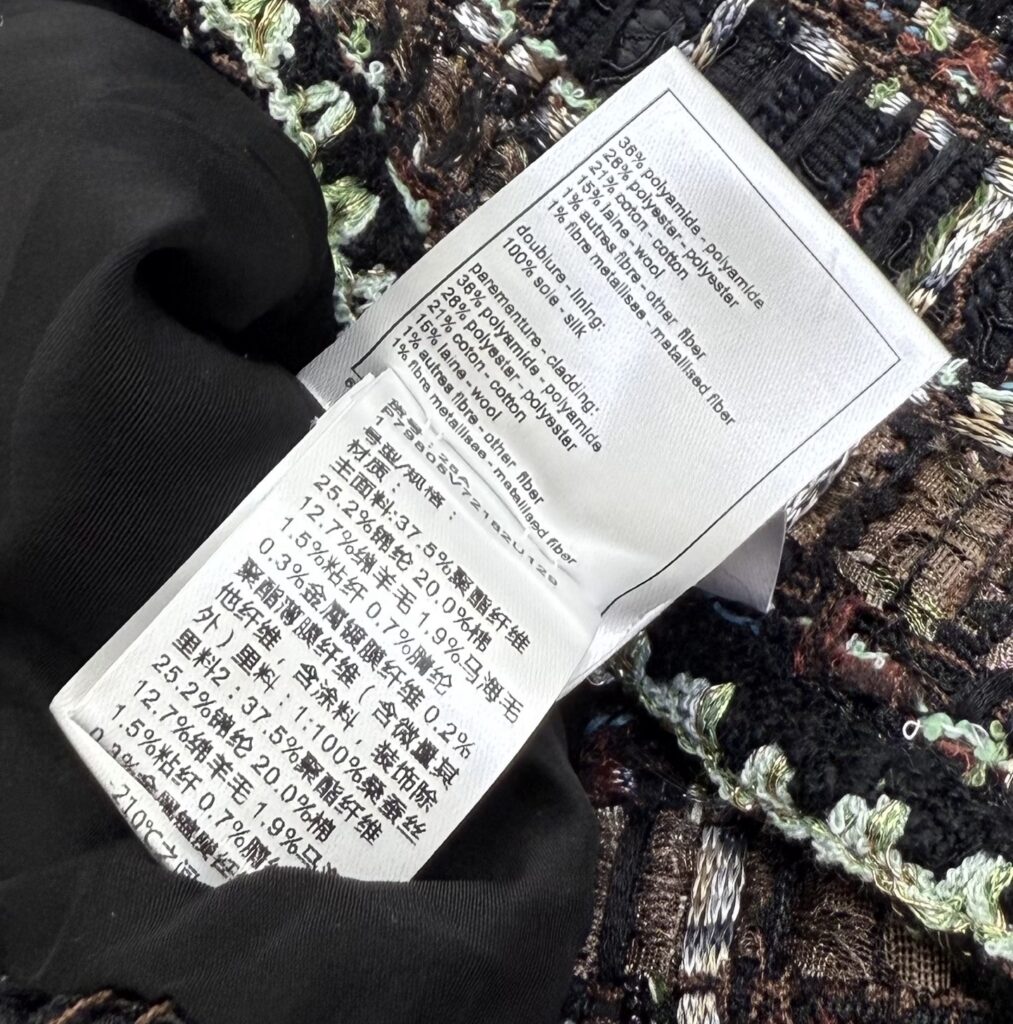 36% polyamide - polyamide
28% polyester - polyester
21% coton - cotton
15% laine - wool
1% autres fibre - other fiber
1% fibre metallisee - metallised fiber
doublure - lining:
100% soie - silk
parementure - cladding:
36% polyamide - polyamide
28% polyester - polyester
21% coton - cotton
15% laine - wool
1% autres fibre - other fiber
1% fibre metallisee - metallised fiber
号型/规格:
材质:
主面料:37.5%聚酯纤维
25.2%锦纶 20.0%棉
12.7%绵羊毛 1.9%马海毛
1.5%粘纤 0.7%腈纶
0.3%金属镀膜纤维 0.2%
聚酯薄膜纤维(含微量其
他纤维,含涂料,装饰除
外)里料:1:100%桑蚕丝
里料2:37.5%聚酯纤维
25.2%锦纶 20.0%棉
12.7%绵羊毛 1.9%马
1.5%粘纤 0.7%腈